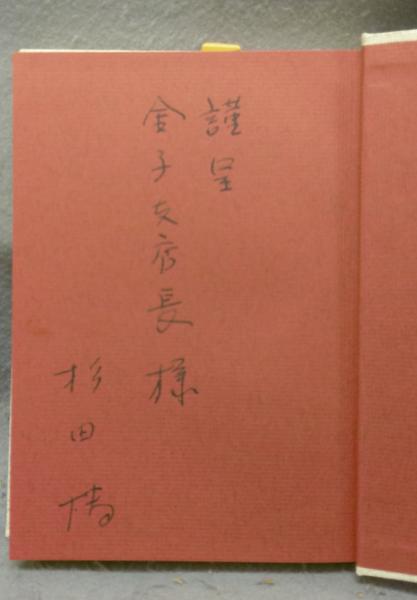 謹呈
金子支店長様
杉田